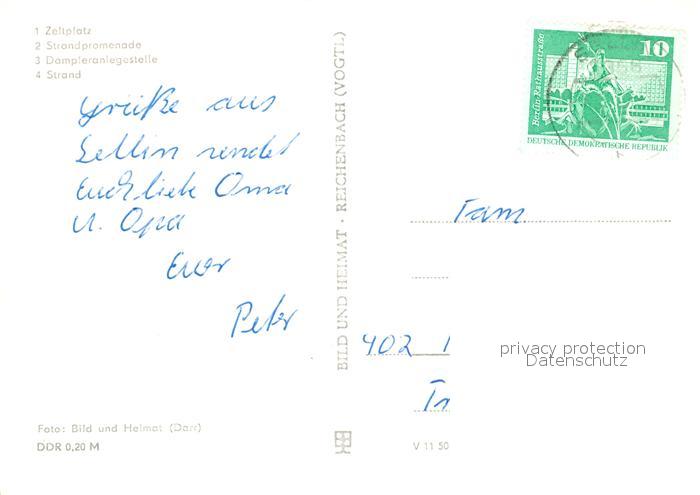 1 Zeltplatz
2 Strandpromenade
3 Dampferanlegestelle
4 Strand
Grüße aus
Sellin sendet
Euch liebe Oma
u. Opa
Euer
Peter
Foto: Bild und Heimat (Darr)
DDR 0,20 M
BILD UND HEIMAT · REICHENBACH (VOGTL)
10
Berlin-Rathausstraße
DEUTSCHE DEMOKRATISCHE REPUBLIK
Fam
402
privacy protection
Datenschutz
V 11 50